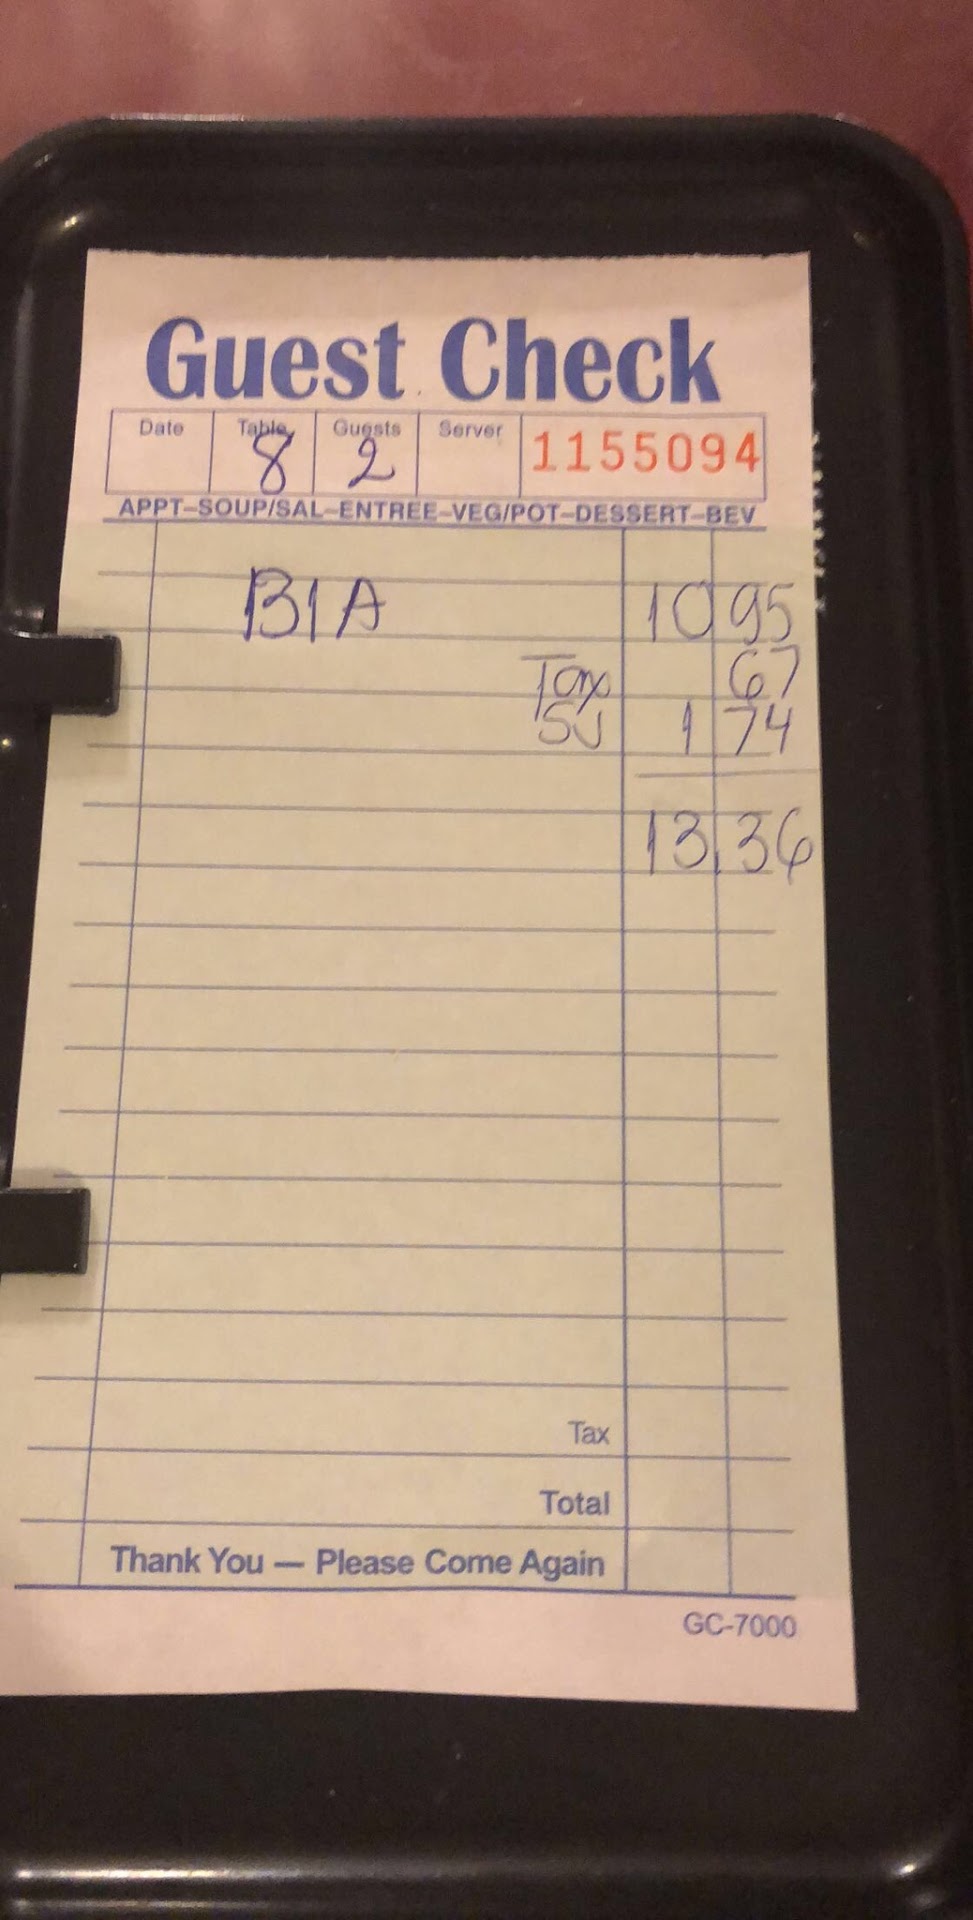 Guest Check
Date Table Guests Server 1155094
8 2
APPT-SOUP/SAL-ENTREE-VEG/POT-DESSERT-BEV
B1A 10 95
Tax 67
SJ 1 74
13.36
Tax
Total
Thank You — Please Come Again
GC-7000